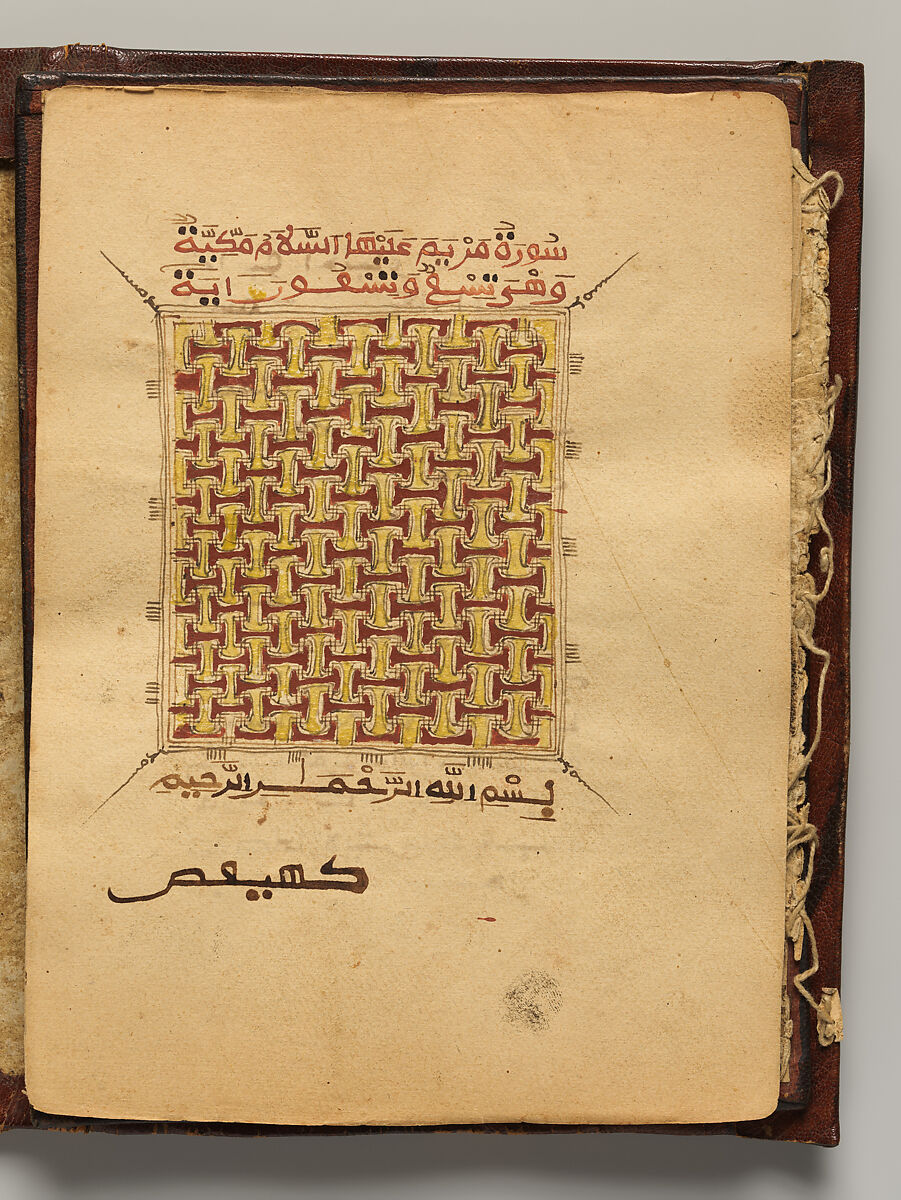 سُورَةُ مَرْيَمَ عَلَيْهَا السَّلَامُ مَكِّيَّةٌ
وَهْيَ تِسْعٌ وَتِسْعُونَ ايَةً
بِسْمِ اللَّهِ الرَّحْمَنِ الرَّحِيمِ
كهيعص